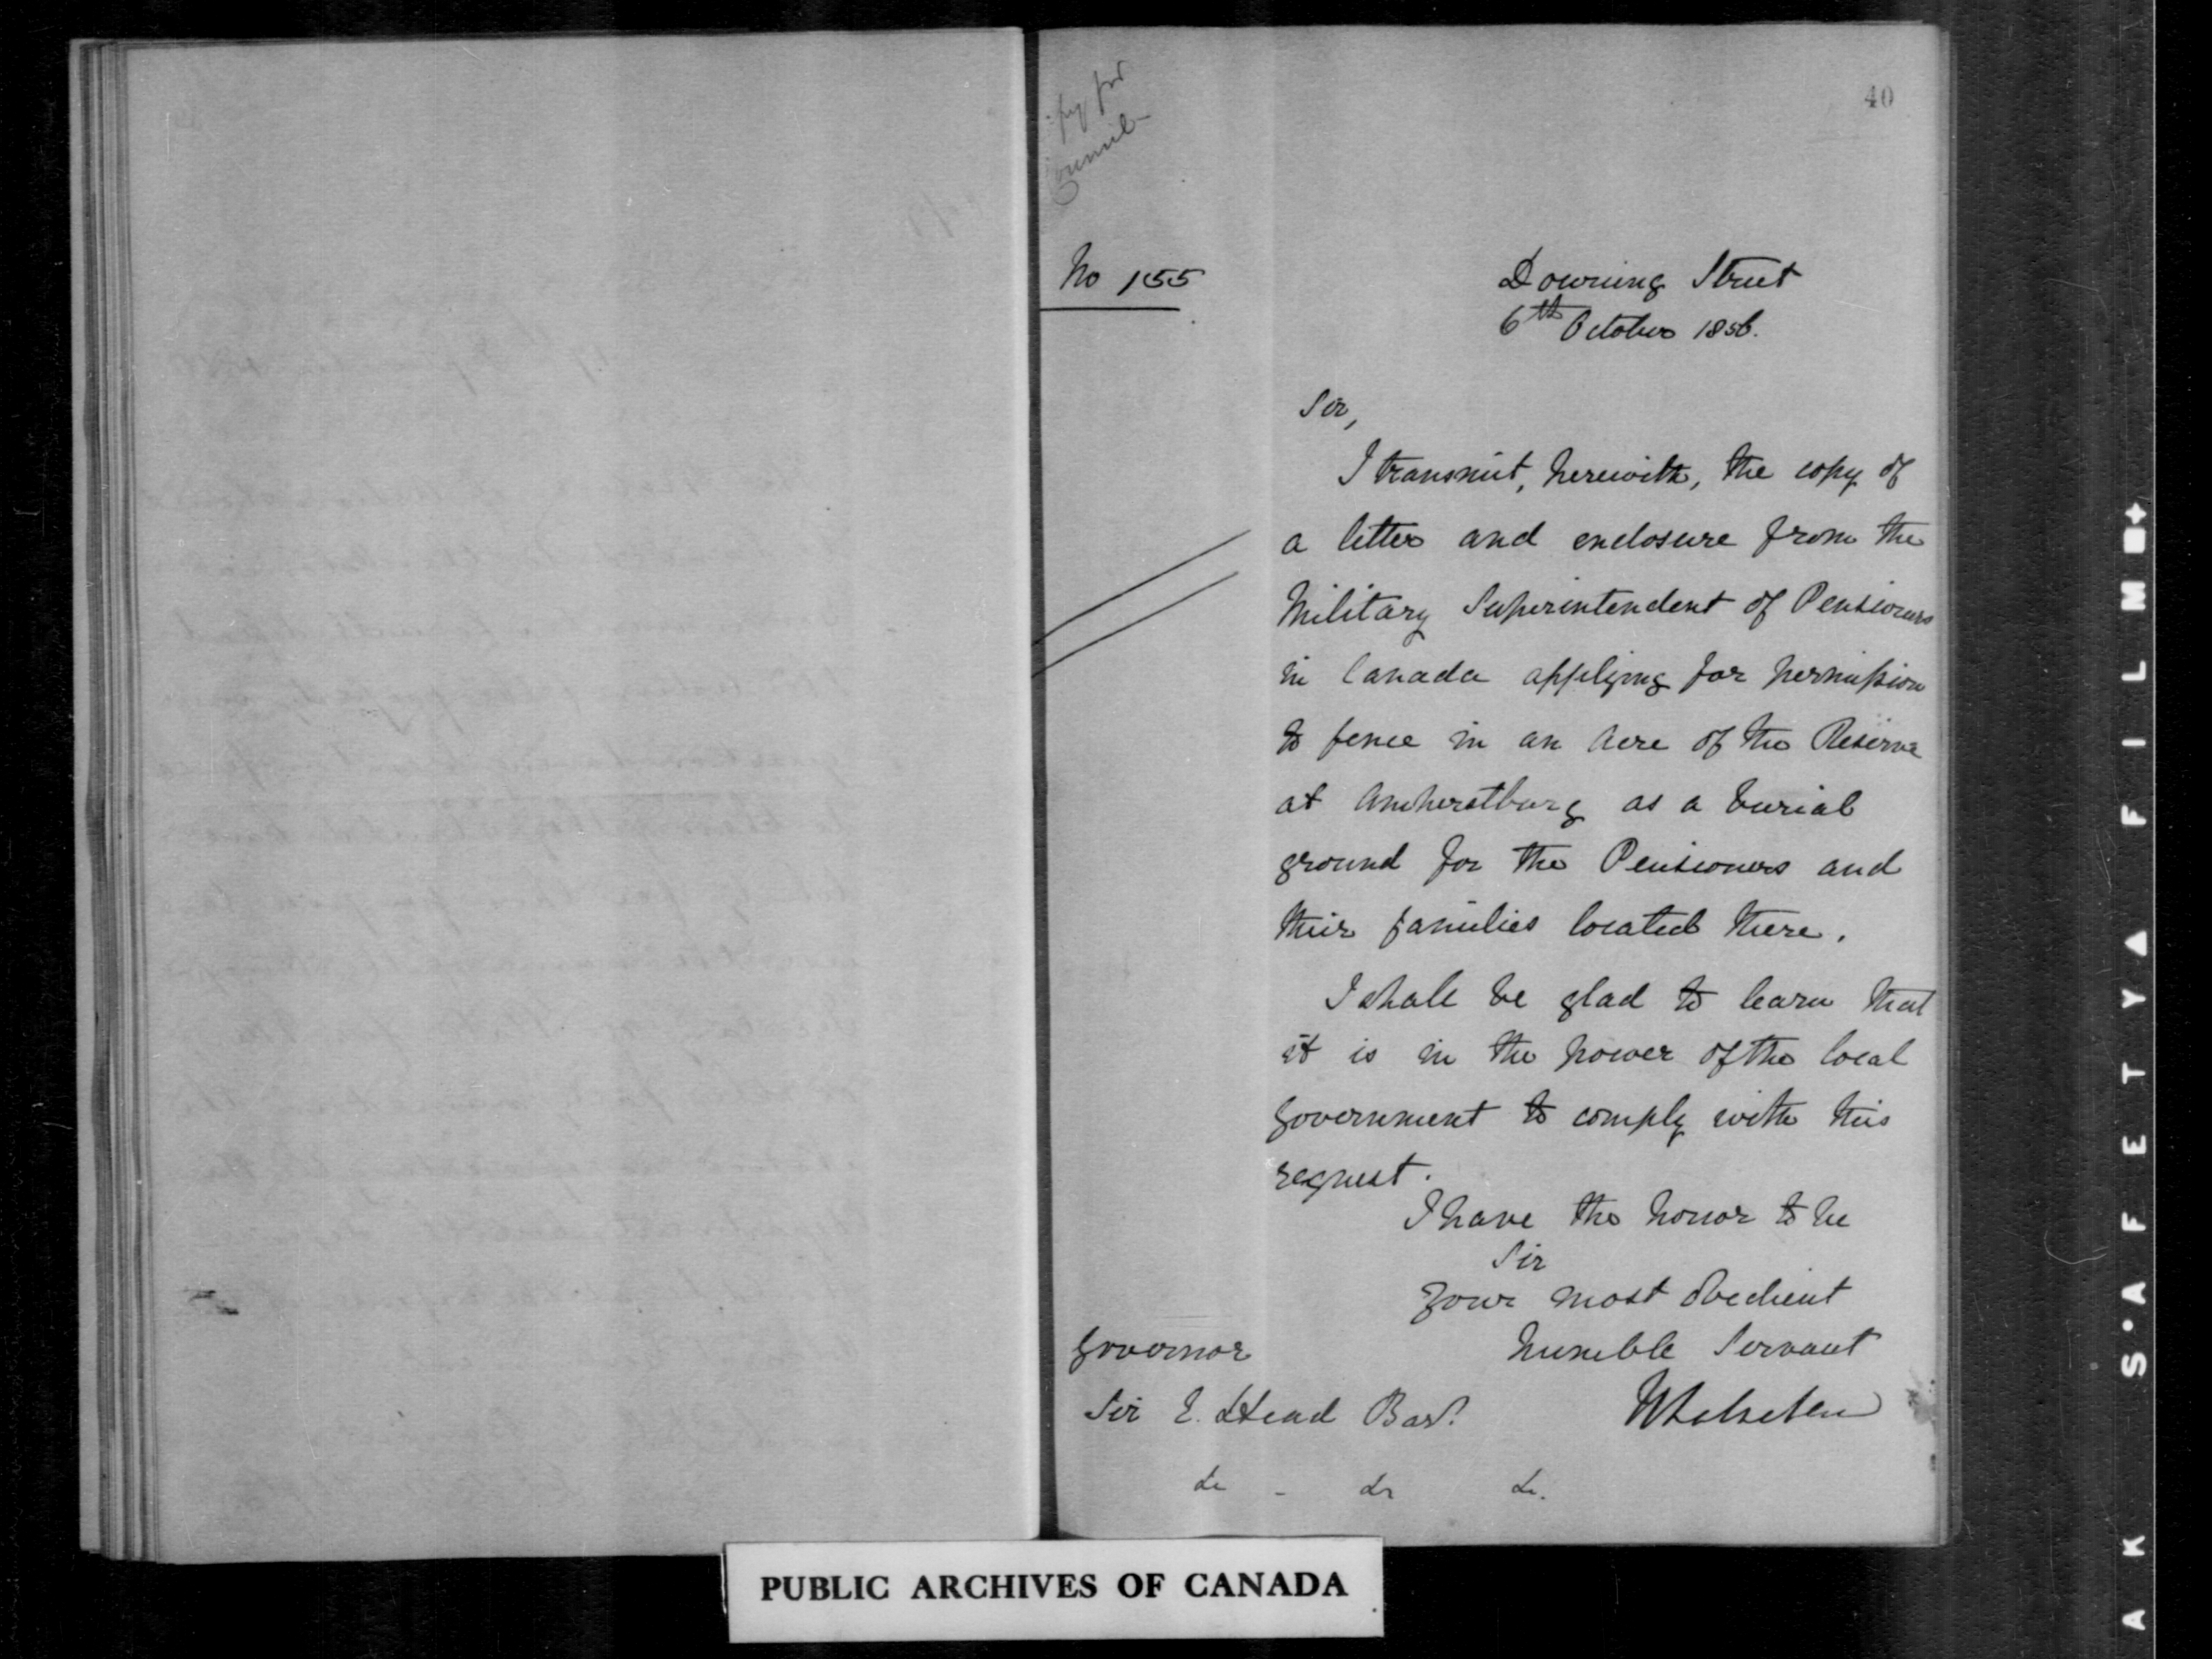 40
Council
No 155
Downing Street
6th October 1856.
Sir,
I transmit, herewith, the copy of
a letter and enclosure from the
Military Superintendent of Pensioners
in Canada applying for permission
to fence in an acre of the Reserve
at Amherstburg as a burial
ground for the Pensioners and
their families located there.
I shall be glad to learn that
it is in the power of the local
Government to comply with this
request.
I have the honor to be
Sir
Your most obedient
humble Servant
Governor
Sir E. Head Bart.
&c - &c &c.
PUBLIC ARCHIVES OF CANADA
A K S'A F E T Y A F I L M